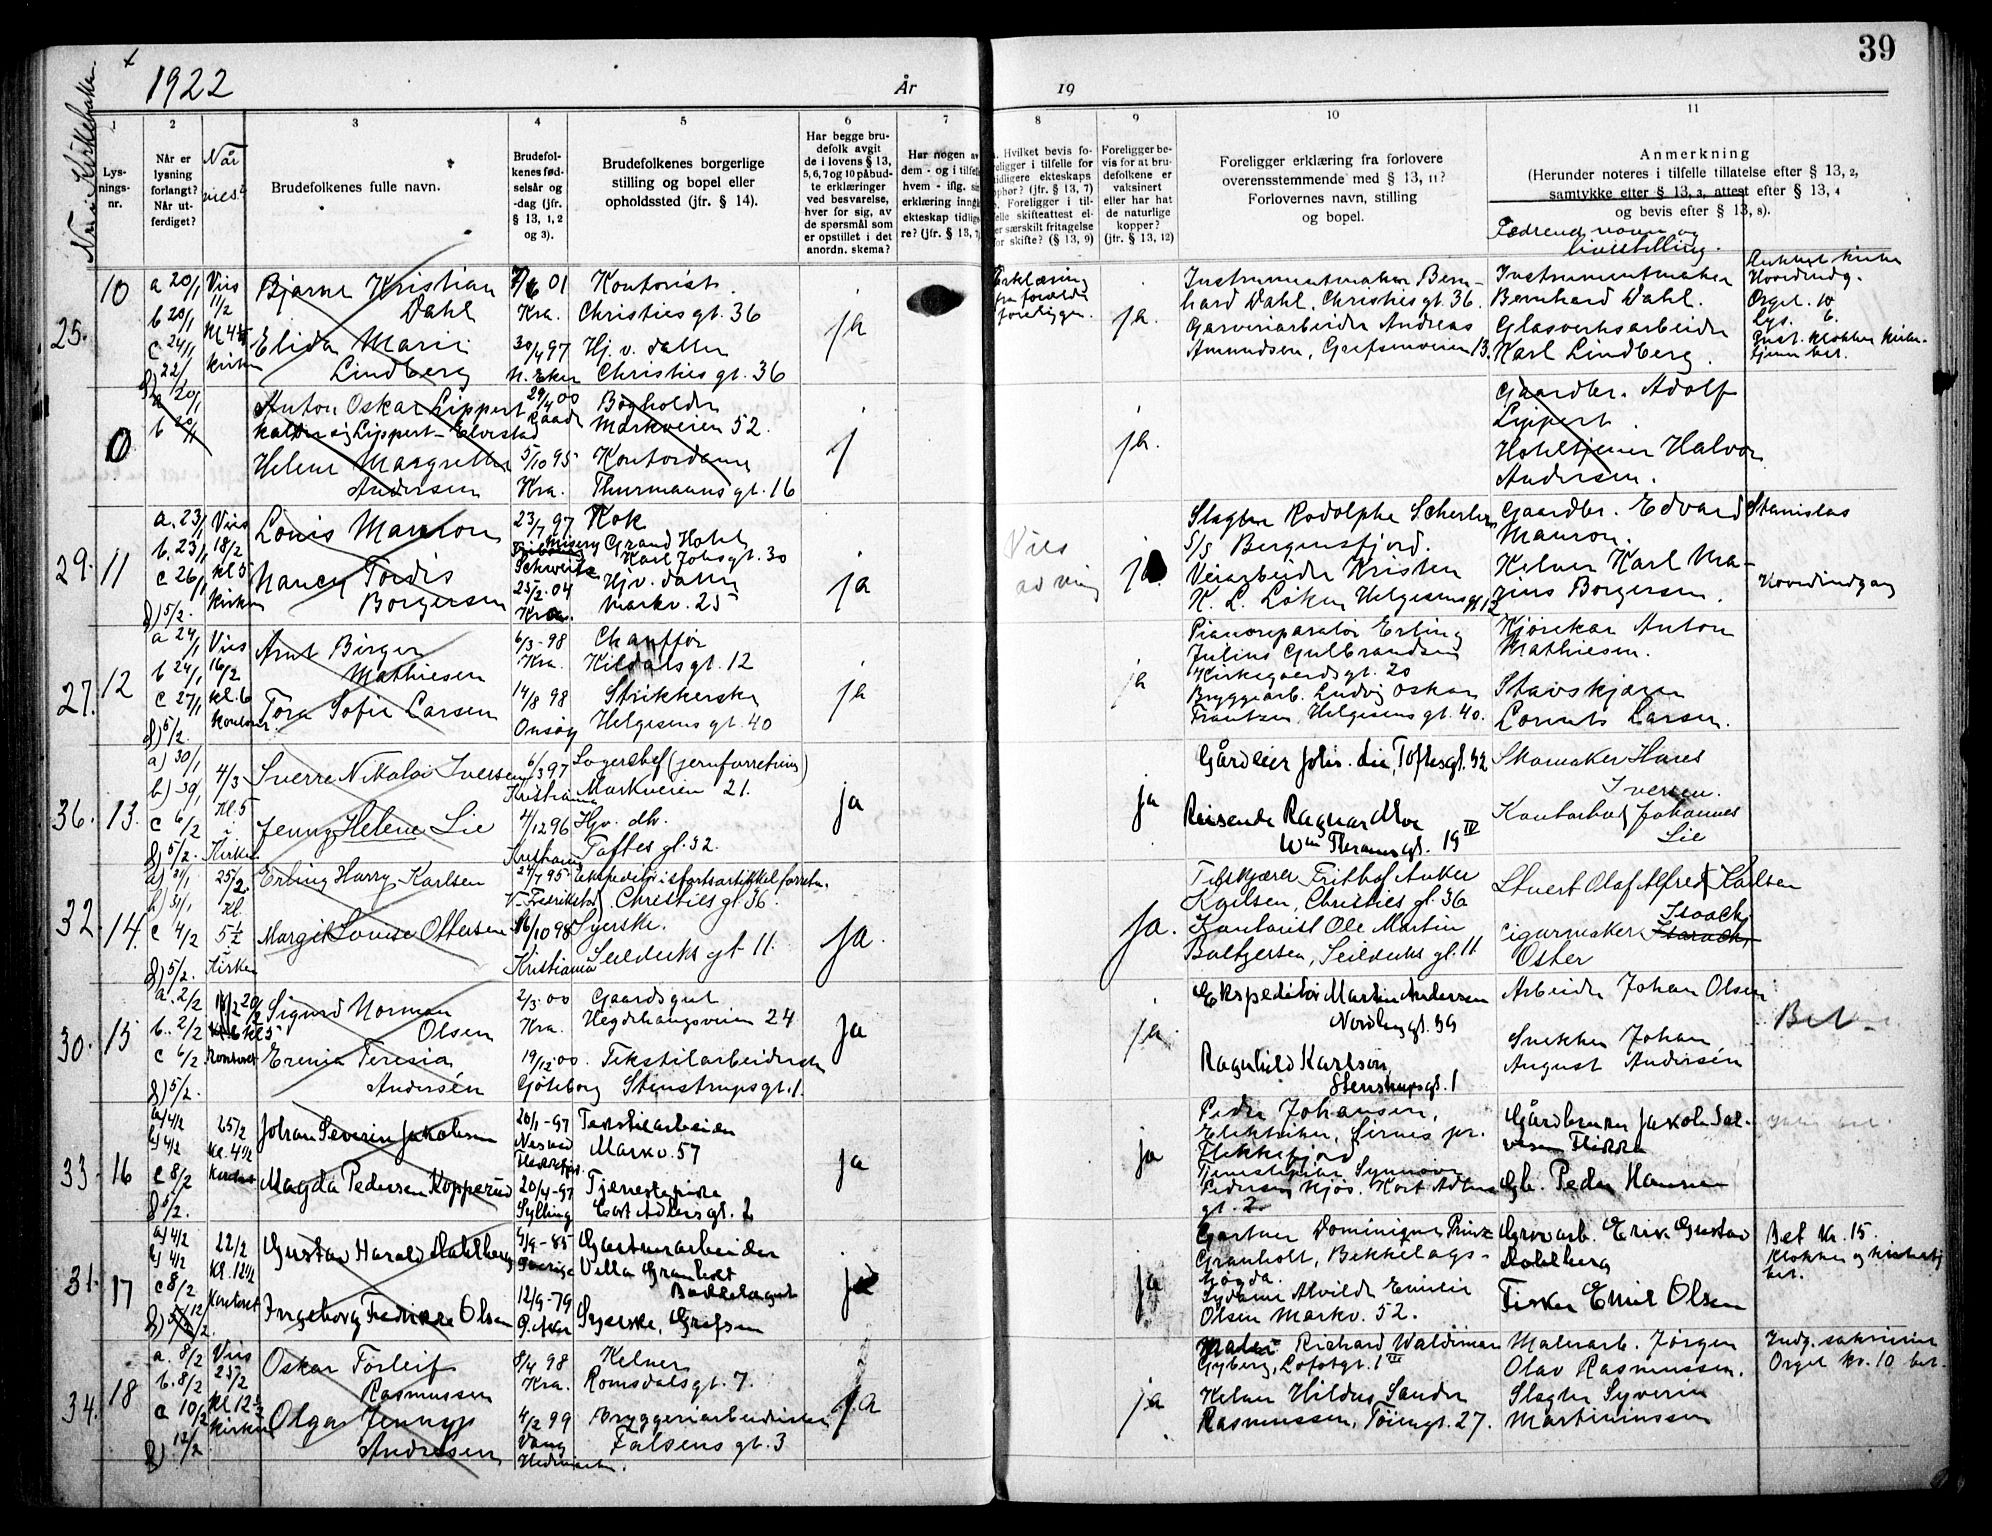 39
1922
År
19
Nr. i Kirkeboken
1
Lys-
nings-
nr.
2
Når er
lysning
forlangt?
Når ut-
ferdiget?
Når
viet?
3
Brudefolkenes fulle navn.
4
Brudefol-
kenes fød-
selsår og
-dag (jfr.
§ 13, 1, 2
og 3).
5
Brudefolkenes borgerlige
stilling og bopel eller
opholdssted (jfr. § 14).
6
Har begge bru-
defolk avgit
de i lovens § 13,
5, 6, 7 og 10 påbud-
te erklæringer
ved besvarelse,
hver for sig, av
de spørsmål som
er opstillet i det
anordn. skema?
7
Har nogen av
dem - og i tilfe
hvem - iflg. sin
erklæring inng
ekteskap tidlig
re? (jfr. § 13, 7
8
Hvilket bevis fo-
religger i tilfelle for
tidligere ekteskaps
ophør? (jfr. § 13, 7)
Foreligger i til-
felle skifteattest el-
er særskilt fritagelse
for skifte? (§ 13, 9)
9
Foreligger be-
vis for at bru-
defolkene er
vaksinert
eller har hat
de naturlige
kopper?
(jfr. § 13, 12)
10
Foreligger erklæring fra forlovere
overensstemmende med § 13, 11?
Forlovernes navn, stilling
og bopel.
11
Anmerkning
(Herunder noteres i tilfelle tillatelse efter § 13, 2,
samtykke efter § 13, 3, attest efter § 13, 4
og bevis efter § 13, 8).
Fædrenes navn og
livsstilling.
25.
10
a 20/1
b 20/1
c 24/1
Viet
11/2
Kirken
Bjarne Kristian
Dahl
Elida Marie
Lindberg
01
Kra.
30/4 97
N. Eker
Kontorist.
Christies gt. 36
Hj. v. datter
Christies gt. 36
ja
Erklæring
fra foreldre
foreligger.
ja.
Instrumentmaker Bern-
hard Dahl, Christies gt. 36
Garveriarbeider Andreas
Amundsen, Grefsenveien 13.
Instrumentmaker
Bernhard Dahl.
Glasverksarbeider
Karl Lindberg.
Hovedindg.
Orgel. 10
Lys. 6.
0
a 20/1
b 20/1
Anton Oskar Lippert
kalder sig Lippert-Elvestad
Helene Margrethe
Andersen
29/4 00
Raade
5/10 95
Kra.
Bogholder
Markveien 52.
Kontordame
Thurmanns gt. 16
j
ja.
Gaardbr. Adolf
Lippert.
Hoteltjener Halvor
Andersen.
29.
11
a. 23/1
b. 23/1
c 26/1
d) 5/2.
Viet
18/2
kl 5
Kirken
Louis Mauron
Nancy Tordis
Borgersen
23/7 97
Schweitz
25/2-04
Kra.
Kok
Grand Hotel
Karl Johsgt. 30
Hj v. datter
Markv. 25
ja
Vies
ja.
Slagter Rodolphe Scherler
S/S Bergensfjord.
Veiarbeider Kristen
K. L. Løken Helgesensgt 12
Gaardbr. Edvard Stanislas
Mauron.
Kelner Karl Ma-
rius Borgersen.
Hovedindgang
27.
12
a 24/1
b 24/1
c 27/1
d) 5/2.
Viet
16/2
kl. 6
kontoret
Arnt Birger
Mathiesen
Tora Sofie Larsen
6/3-98
Kra.
14/8 98
Onsøy
Chauffør
Kildals gt. 12
Strikkerske
Helgesens gt. 40
ja
ja
Pianoreparatør Erling
Julius Gulbrandsen
Kirkegaardsgt. 20
Bryggearb. Ludvig Oskar
Frantzen, Helgesens gt. 40.
Kjørekar Anton
Mathiesen.
Stavskjærer
Lorents Larsen.
36.
13.
a) 30/1
b) 30/1
c 6/2
d) 5/2.
4/3
Kl. 5
i
Kirken
Sverre Nikolai Iversen
Jenny Helene Lie
6/3 97
Kristiania
4/12 96
Kristiania
Lagerchef (jernforretning)
Markveien 21.
Hjv. dtr.
Toftes gt. 32.
ja
ja
Gårdeier Johs. Lie, Toftesgt. 32
Reisende Ragnar Moe
Wm Thranesgt. 19 IV
Skomaker Hans
Iversen.
Kontorbud Johannes
Lie
32.
14.
a) 31/1
b) 31/1
c 4/2
d) 5/2.
25/2.
Kl.
5 1/2
Kirken
Erling Harry Karlsen
Margit Lovise Ottersen
24/7 95
V. Fredrikstad
16/10 98
Kristiania
Ekspeditør i sportsartikkelforretn.
Christies gt 36.
Syerske.
Seilduks gt 11.
ja.
ja.
Frithof Anker
Karlsen, Christies gt 36
Kontorist Ole Martin
Baltzersen, Seilduks gt. 11
Stuert Olaf Alfred Karlsen
Isaach
Cigarmaker
Oster
30.
15
a. 2/2
b. 2/2
c 6/2
d) 5/2.
20/2
kl 5
Kontoret
Sigurd Norman
Olsen
Erenia Teresia
Andersén
2/3-00
Kra.
19/12-00.
Göteborg
Gaardsgut
Hegdehaugsveien 24
Tekstilarbeiderske
Stenstrupsgt. 1.
ja
ja
Ekspeditør Martin Andersen
Nordbygt. 39
Ragnhild Karlson,
Stenstrupsgt. 1
Arbeider Johan Olsen
Snekker Johan
August Andersén
Bet.
33
16
a) 4/2
b) 4/2
c 8/2
d 5/2.
25/2
Kl. 4 1/2
Kontoret
Johan Severin Jakobsen
Magda Pedersen Kopperud
20/1-97
20/4-97
Sylling
Tekstilarbeider
Markv. 57
Tjenestepike
Cort Adlersgt. 2
ja
ja
Peder Johansen,
Elektriker, Sirnes pr.
Flekkefjord
Tjenestepike Synnøve
Pedersen Mjøs. Kort Adlers
gt. 2.
Gårdbruker Jakob Sal-
vesen Flikka
Gb. Peder Hansen
31.
17
a) 4/2
b) 4/2
c 8/2
22/2
Kl. 12 1/2
Kontoret
Gustav Harald Dahlberg
Ingeborg Fredrikke Olsen
5/9-85
Sverige
12/9-79
Ø. Aker
Gartnerarbeider
Villa Granholt
Bækkelaget
Syerske, Grefsen
ja
ja
Gartner Dominique Prinz
Granholt, Bekkelags-
høgda.
Sydame Alvilde Emilie
Olsen Markv. 52.
Grovarb. Erik Gustav
Dahlberg
Fisker Emil Olsen
Bet Kr. 15.
Klokker og kirketj
bet.
34.
18
a. 8/2
b. 8/2
c 10/2
d) 12/2
Viet
25/2
kl 12 1/2
Kirken
Oskar Torleif
Rasmussen
Olga Jenny
Andresen
8/4 98
Kra.
4/2 99
Vang
Hedmarken.
Kelner
Romsdalsgt. 7.
Bryggeriarbeiderske
Falsens gt. 3
ja
ja
Maler Richard Waldemar
Gyberg, Lofotgt. 1 III
Kelner Hildus Sander
Rasmussen, Tøiengt. 27.
Malerarb. Jørgen
Olav Rasmussen.
Slagter Syverin
Martininssen
Indg. sakristiet
Orgel kr. 10 bet.